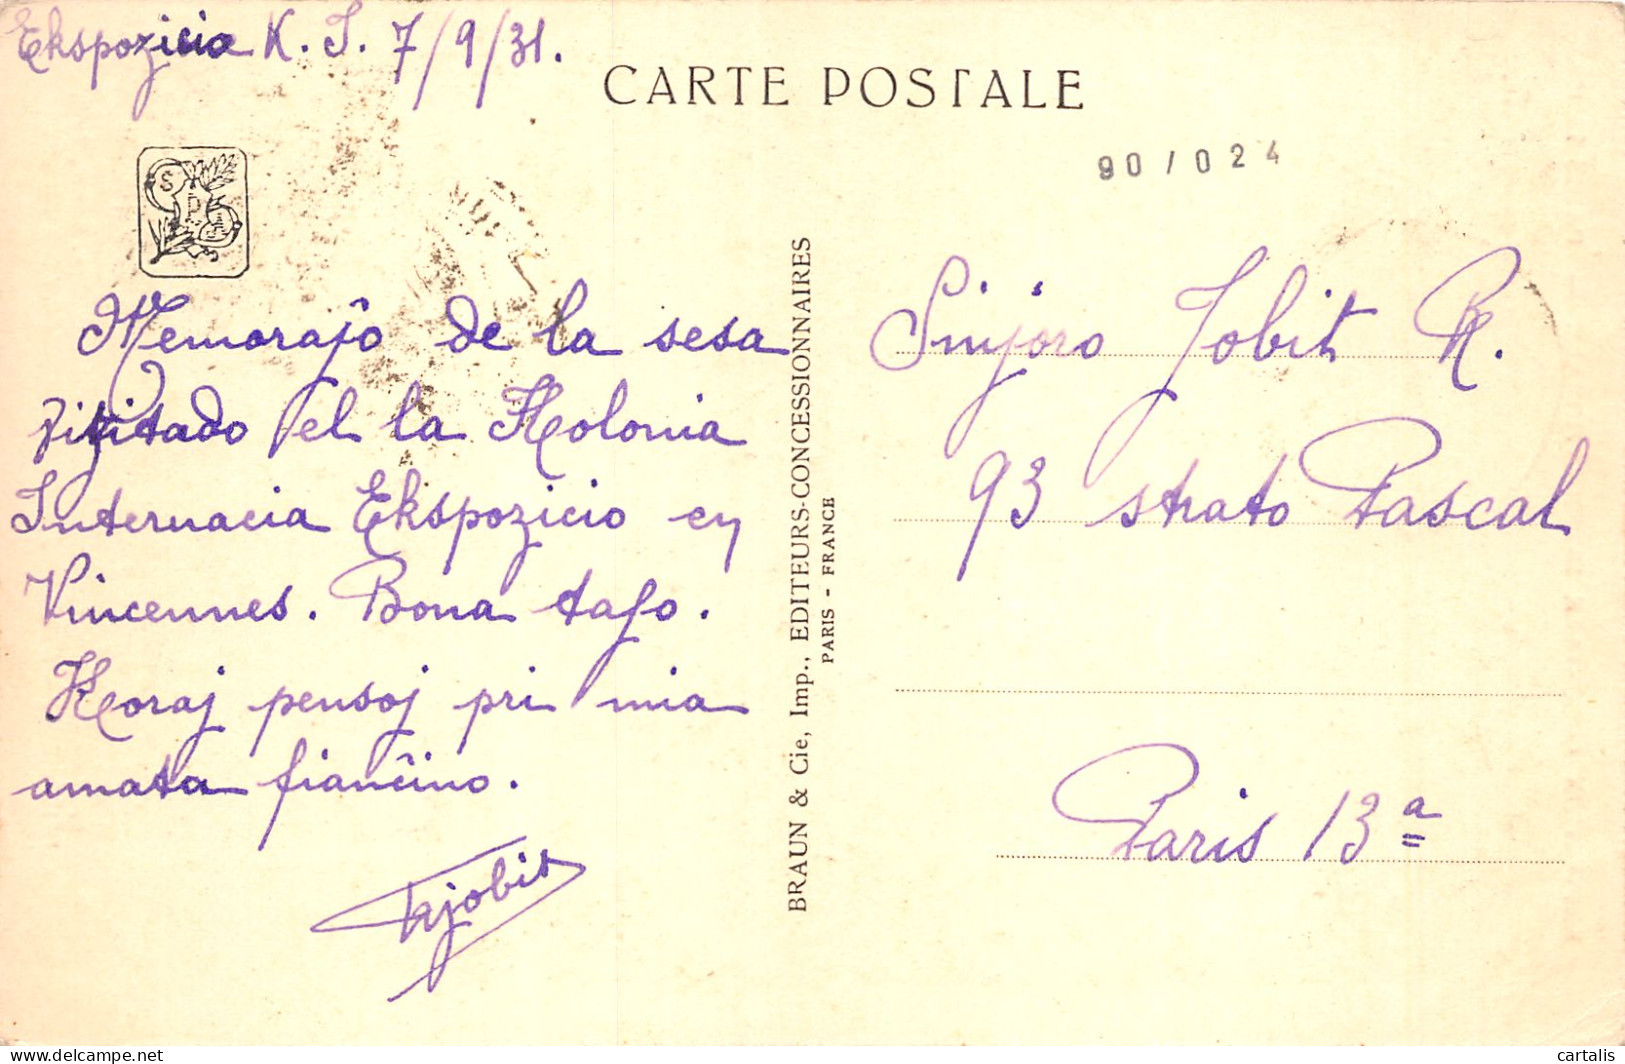 Ekspozicia K. I. 7/9/31.
CARTE POSTALE
90/024
Memoraĵo de la sesa
vizitado el la Kolonia
Internacia Ekspozicio en
Vincennes. Bona tago.
Koraj pensoj pri mia
amata fianĉino.
Rjobit
BRAUN & Cie, Imp., EDITEURS-CONCESSIONNAIRES
PARIS - FRANCE
Sinjoro Jobit R.
93 strato Pascal
Paris 13a
cartalis